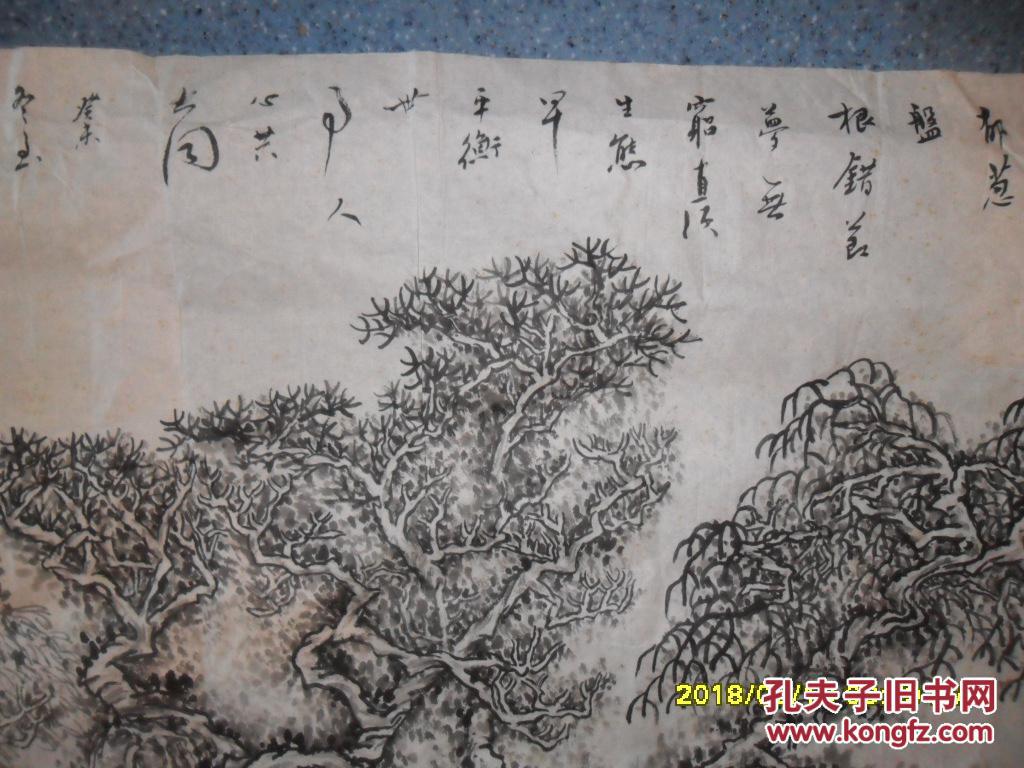 郁葱
盤
根錯節
夢無
窮直須
生態
早
平衡
世
事人
心共
大同
癸未
冬至
2018/0
孔夫子旧书网
www.kongfz.com